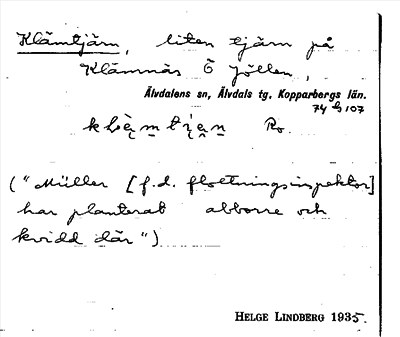 Klämtjärn, liten tjärn på
Klämnäs Ö Jöllen,
Älvdalens sn, Älvdals tg. Kopparbergs län.
74 G 107
Ro.
("Müller [f.d. flottningsinspektor]
har planterat abborre och
kvidd där")
HELGE LINDBERG 1935.